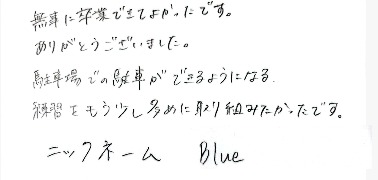 無事に卒業できてよかったです。
ありがとうございました。
駐車場での駐車ができるようになる
練習をもう少し多めに取り組みたかったです。
ニックネーム Blue